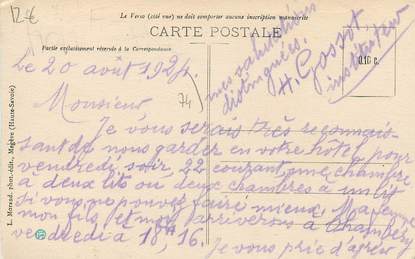 12 €
Le Verso (côté vue) ne doit comporter aucune inscription manuscrite
CARTE POSTALE
Partie exclusivement réservée à la Correspondance
L. Morand, phot.-édit., Megève (Haute-Savoie)
0.10 c.
Le 20 août 1924.
74
Monsieur
Je vous serais très reconnais-
sant de nous garder en votre hôtel pour
vendredi soir, 22 courant, une chambre
à deux lits ou deux chambres à un lit
si vous ne pouvez faire mieux. Ma femme
mon fils, et moi arriverons à Chambéry
vendredi à 18h 16.
Je vous prie d'agréer
mes salutations
distinguées.
H. Gossot
instituteur